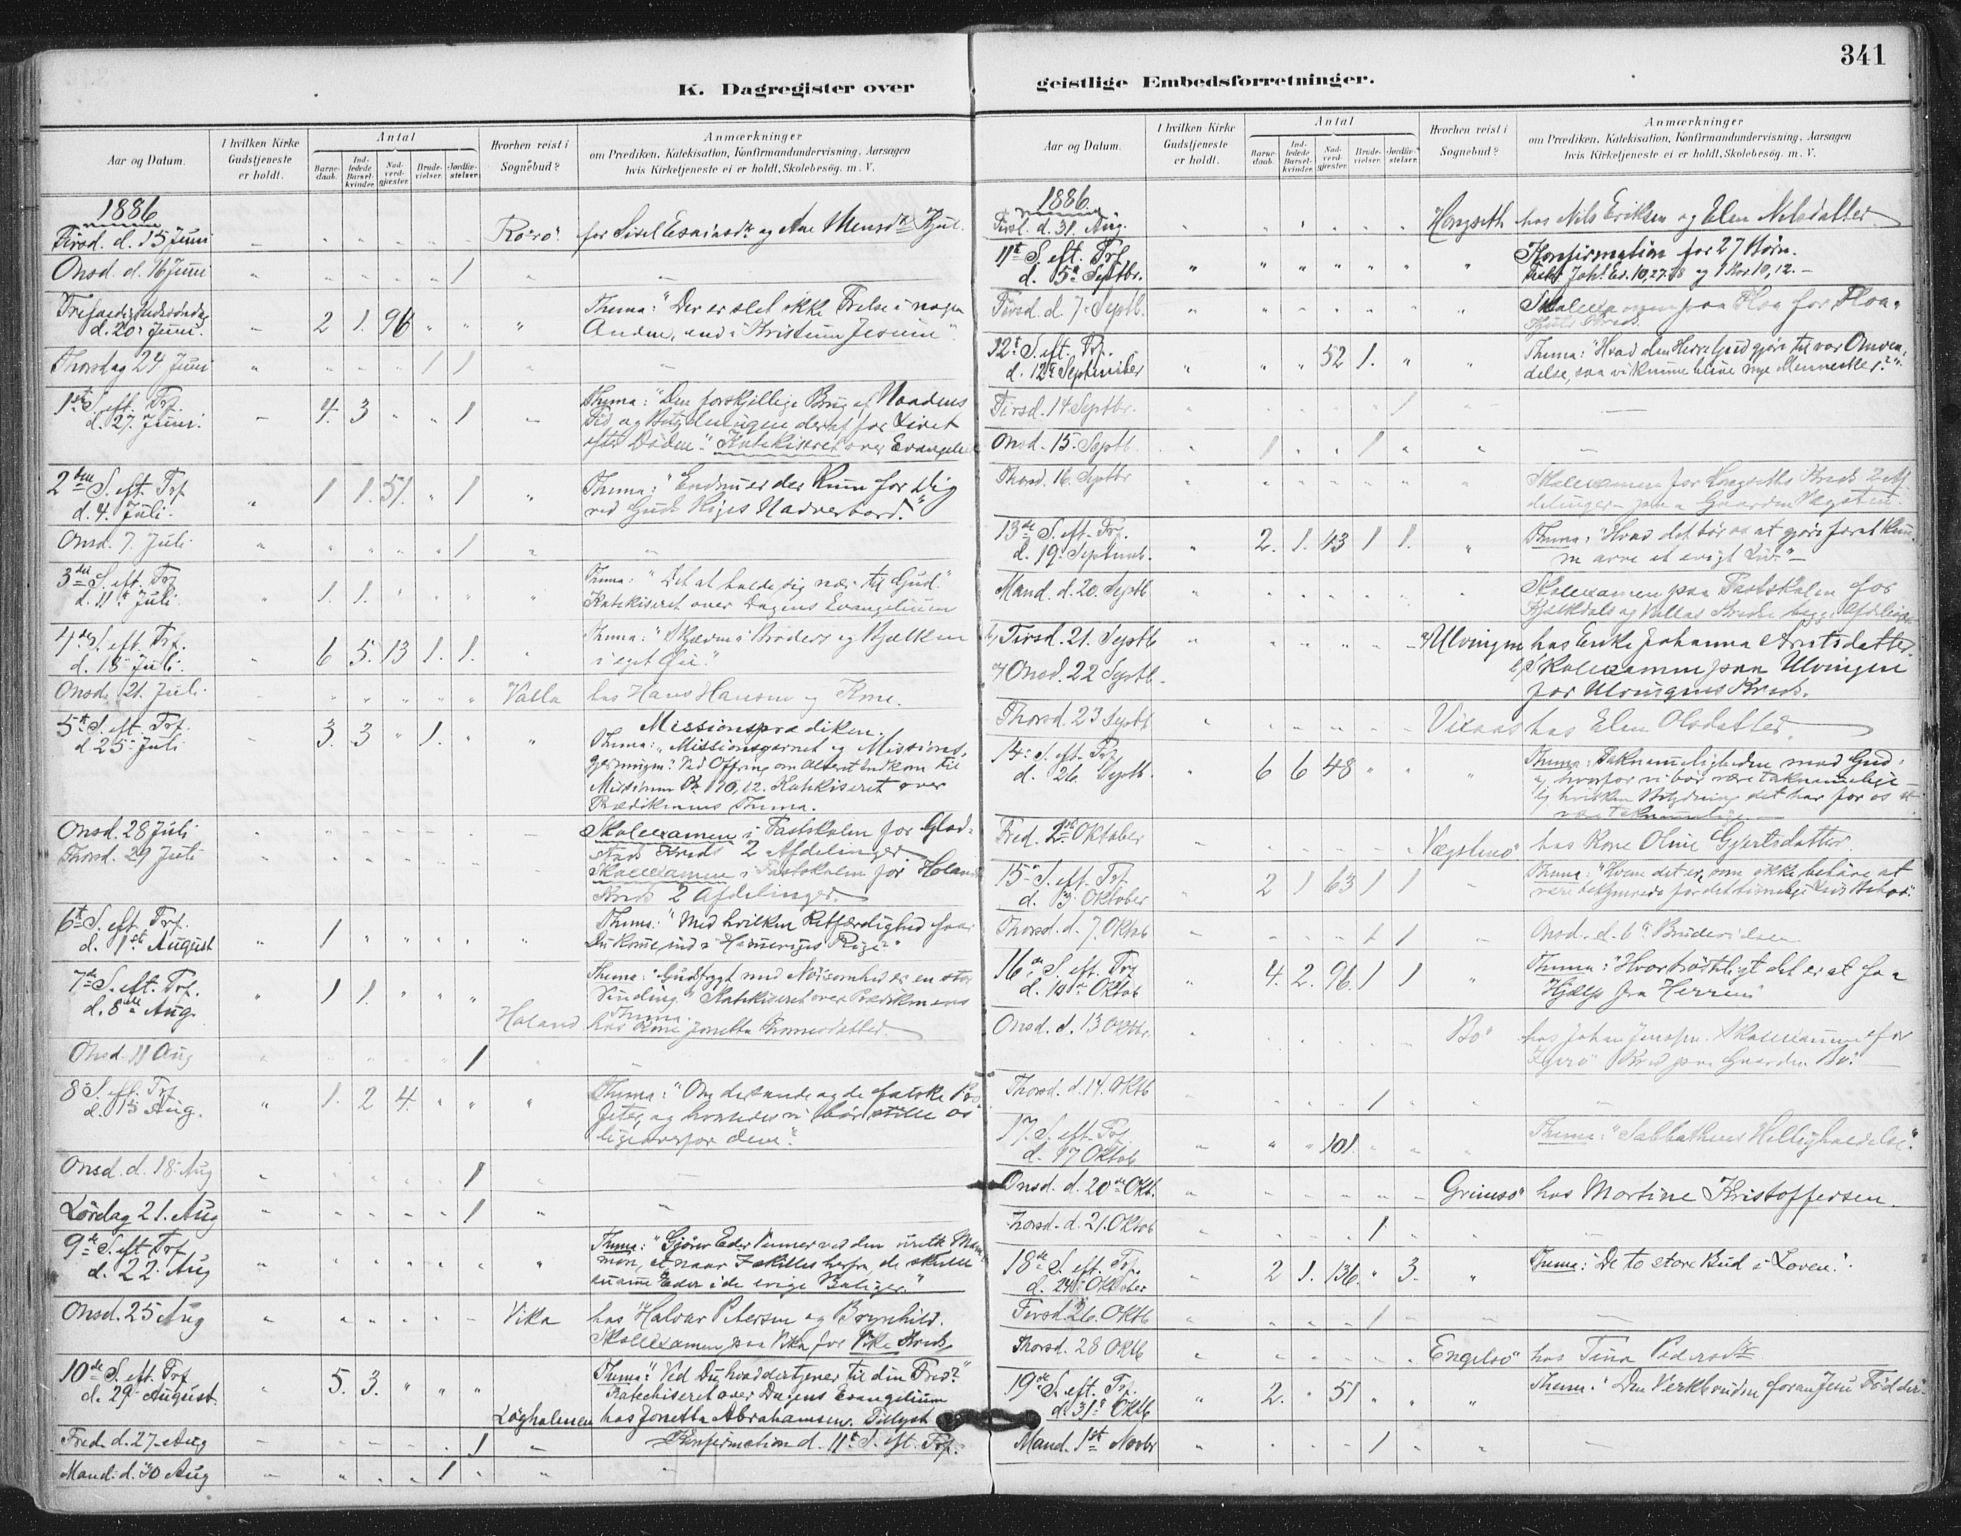 341
K. Dagregister over
geistlige Embedsforretninger.
Aar og Datum.
I hvilken Kirke Gudstjeneste er holdt.
Antal
Barnedaab.
Indledede Barselkvinder.
Nadverdgjester.
Brudevielser.
Jordfæstelser.
Hvorhen reist i Sognebud?
Anmærkninger
om Prædiken, Katekisation, Konfirmandundervisning, Aarsagen
hvis Kirketjeneste ei er holdt, Skolebesøg. m. V.
1886
Tirsd. d. 15 Juni Rörö for Sivel og Ane
Onsd. d. 16 Juni 1
d. 20 Juni. 2 1. 96 Thema: "Der er slet ikke Frelse i nogen
Anden, end i Kristum Jesum".
Thorsdag 24 Juni 1 1
1ste S. eft. Trf. 4. 3 1 Thema: "Den forskjellige Brug af Naadens
d. 27. Juni. Tid og Betydningen deraf for Livet
efter Döden." Katekiseret over Evangeliet
2den S. eft. Trf 1 1. 51. 1 Thema: "Endnu er der Rum for Dig
d. 4. Juli. ved Guds Riges Nadverbord."
Onsd. 7. Juli 1
3die S. eft. Trf 1. 1. Thema: "Det at holde sig nær til Gud."
d. 11t Juli Katekiseret over Dagens Evangelium
4de S. eft. Trf. 6 5. 13 1. 1. Thema: "Skjæven i Broders og Bjælken
d. 18 Juli. i eget Öie."
Onsd. 21. Juli. Valla hos Hans Hansen og Kone.
5t S. eft. Trf. 3. 3 1. Missionsprædiken.
d. 25 Juli Thema: "Missionsgarnet og Missions-
gjerningen". Ved Offring om Alteret indkom til
Missionen Kr. 10,12. Katekiseret over
Prædikenens Thema.
Onsd. 28 Juli Skoleexamen i Fastskolen for
Kreds 2 Afdelinger
Thorsd. 29 Juli Skoleexamen i Fastskolen for Holands
Kreds 2 Afdelinger.
6t S. eft. Trf. 1 Thema: "Med hvilken Retfærdighed faar
d. 1ste August Du komme ind i Himmeriges Rige?"
7de S. eft. Trf. 1 1. Thema: "Gudsfrygt med Nöisomhed er en stor
d. 8de Aug. Vinding." Katekiseret over Prædikenens
Thema.
Holand hos Kone Jonetta
Onsd. 11 Aug 1
8 S. eft. Trf 1. 2 4. Thema: "Om de sande og de falske Pro-
d. 15 Aug. feter, og hvorledes vi bör stille os
ligeoverfor dem."
Onsd. d. 18. Aug 1
Lördag 21. Aug 1
9de S. eft Trf Thema: "Gjörer Eder Venner ved den urette Mam-
d. 22. Aug mon, at naar I skilles herfra, de skulle
annamme Eder i de evige Boliger."
Onsd. 25 Aug Vika hos Halvar Petersen og Brynhild.
Skoleexamen paa Vika for Vika Kreds
10de S. eft. Trf 5. 3. Thema: "Ved Du hvad der tjener til din Fred?"
d. 29. August. Katechiseret over Dagens Evangelium
Lögholmen hos Jonetta Abrahamsen. Tillyst
Fred. d. 27. Aug 1 Konfirmation d. 11t S. eft. Trf.
Mand. d. 30 Aug 1
Aar og Datum.
I hvilken Kirke Gudstjeneste er holdt.
Antal
Barnedaab.
Indledede Barselkvinder.
Nadverdgjester.
Brudevielser.
Jordfæstelser.
Hvorhen reist i Sognebud?
Anmærkninger
om Prædiken, Katekisation, Konfirmandundervisning, Aarsagen
hvis Kirketjeneste ei er holdt, Skolebesög. m. V.
1886.
Tirsd. d. 31. Aug. Hongseth hos Nils Eriksen og Elen Nilsdatter
11t S. eft. Trf. Konfirmation for 27 Börn.
d. 5te Septbr. Text Joh. Ev. 10,27-28 og 1 Kor 10,12.
Tirsd. d. 7. Septb. Skoleexamen paa Floa for Floa-
Kreds
12t S. eft. Trf. 52 1. Thema: "Hvad den Herre Gud gjör til vor Omven-
d. 12te September delse, saa vi kunne blive nye Mennesker?"
Tirsd. 14 Septbr. 1
Onsd. 15. Septb. 1 1
Thorsd. 16. Septbr Skoleexamen for Hongseths Kreds 2 Af-
delinger paa Gaarden
13de S. eft. Trf. 2. 1. 43 1 1. Thema: "Hvad det bör os at gjöre for at kun-
d. 19. Septemb. ne arve et evigt Liv."
Mand. d. 20. Septb Skoleexamen paa Fastskolen for
og Vallas Kreds begge Afdelinger
Tirsd. 21. Septb Ulvingen hos Enke Johanna Arntsdatter.
Onsd. 22 Septb. Skoleexamen paa Ulvingen
for Ulvingens Kreds.
Thorsd. 23 Septb hos Elen Olsdatter
14de S. eft. Trf. 6 6 48 Thema: Taknemmeligheden mod Gud:
d. 26. Septb. og hvorfor vi bör være taknemmelige
og hvilken Betydning det har for os at
være taknemmelige
Fred. 1ste Oktober hos Kone Oline Gjertsdatter.
15de S. eft. Trf. 2 1 63 1 1 Thema: "Hvem det er, som ikke behöve at
d. 3. Oktober være bekymrede for det timelige Livs Behov."
Thorsd. d. 7. Oktob 1 1 Onsd. d. 6te Brudevielsen
16de S. eft. Trf 4. 2. 96. 1 1 Thema: "Hvor trösteligt det er at faa
d. 10de Oktob Hjælp fra Herren"
Onsd. d. 13 Oktbr. Bö hos Johan Jensen. Skoleexamen for
Kreds paa Gaarden Bö.
Thorsd. d. 14. Oktb 1
17. S. eft. Trf. 101. Thema: "Sabbathens Helligholdelse".
d. 17 Oktob
Onsd. d. 20de Okt. Grimsö hos Martine Kristoffersen.
Thorsd. d. 21. Oktob 1
18de S. eft. Trf. 2 1. 136. 3. Thema: "De to store Bud i Loven."
d. 24. Oktober
Tirsd. 26. Oktb 1
Thorsd. 28 Oktb Engelsö hos Tina
19de S. eft. Trf. 2. 51 Thema: "Den Verkbrudne foran Jesu Födder."
d. 31te Oktb
Mand. 1ste Novbr 1